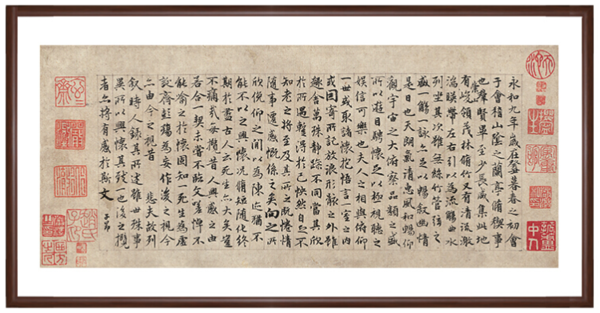 永和九年歲在癸丑暮春之初會
于會稽山陰之蘭亭脩稧事
也群賢畢至少長咸集此地
有峻領茂林脩竹又有清流激
湍暎帶左右引以為流觴曲水
列坐其次雖無絲竹管弦之
盛一觴一詠亦足以暢敘幽情
是日也天朗氣清惠風和暢仰
觀宇宙之大俯察品類之盛
所以遊目騁懷足以極視聽之
娛信可樂也夫人之相與俯仰
一世或取諸懷抱悟言一室之內
或因寄所託放浪形骸之外雖
趣舍萬殊靜躁不同當其欣
於所遇暫得於己怏然自足不
知老之將至及其所之既惓情
隨事遷感慨係之矣向之所
欣俛仰之間以為陳迹猶不
能不以之興懷況脩短隨化終
期於盡古人云死生亦大矣豈
不痛哉每攬昔人興感之由
若合一契未嘗不臨文嗟悼不
能喻之於懷固知一死生為虛
誕齊彭殤為妄作後之視今
亦由今之視昔 悲夫故列
敘時人錄其所述雖世殊事
異所以興懷其致一也後之攬
者亦將有感於斯文
子昂